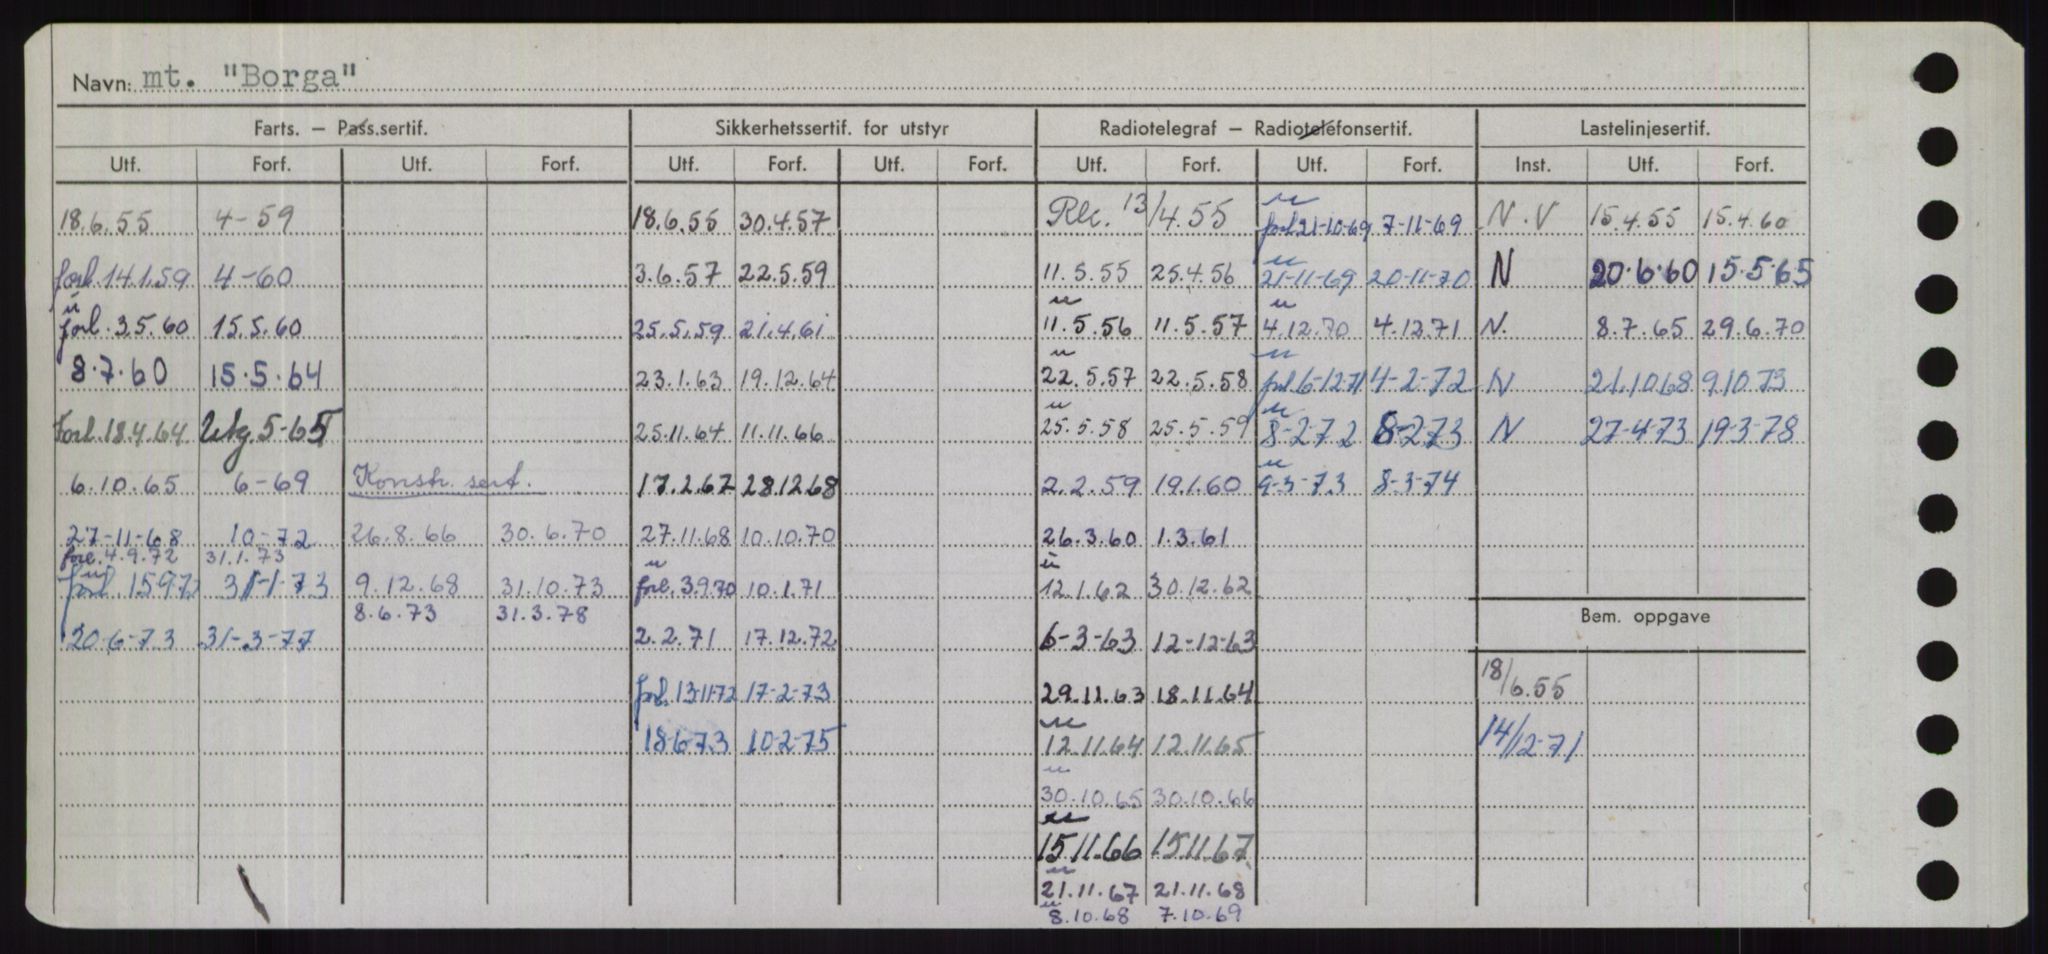 Navn: mt. "Borga"
Farts. — Pass.sertif. Sikkerhetssertif. for utstyr Radiotelegraf — Radiotelefonsertif. Lastelinjesertif.
Utf. Forf. Utf. Forf. Utf. Forf. Utf. Forf. Utf. Forf. Utf. Forf. Inst. Utf. Forf.
18.6.55 4-59 18.6.55 30.4.57 13/4.55 forl 21-10-69 7-11-69 N.V 15.4.55 15.4.60
forl. 14.1.59 4-60 3.6.57 22.5.59 11.5.55 25.4.56 21-11-69 20-11-70 N 20.6.60 15.5.65
forl. 3.5.60 15.5.60 25.5.59 21.4.61 11.5.56 11.5.57 4.12.70 4.12.71 N. 8.7.65 29.6.70
8.7.60 15.5.64 23.1.63 19.12.64 22.5.57 22.5.58 forl 6-12-71 4-2-72 N 21.10.68 9.10.73
Forl. 18.4.64 Utg 5-65 25.11.64 11.11.66 25.5.58 25.5.59 8-2-72 8-2-73 N 27-4-73 19-3-78
6.10.65 6-69 Konstr. sert. 17.2.67 28.12.68 2.2.59 19.1.60 9-3-73 8-3-74
27-11-68 10-72 26.8.66 30.6.70 27.11.68 10.10.70 26.3.60 1.3.61
forl. 4.9.72 31.1.73
forl. 15.9.72 31-1-73 9.12.68 31.10.73 forl. 3.9.70 10.1.71 12.1.62 30.12.62
8.6.73 31.3.78 Bem. oppgave
20-6-73 31-3-77 2.2.71 17.12.72 6-3-63 12-12-63
forl. 13-11-72 17-2-73 29.11.63 18.11.64 18/6.55
18-6-73 10-2-75 12.11.64 12.11.65 14/12-71
30.10.65 30.10.66
15.11.66 15.11.67
21.11.67 21.11.68
8.10.68 7.10.69